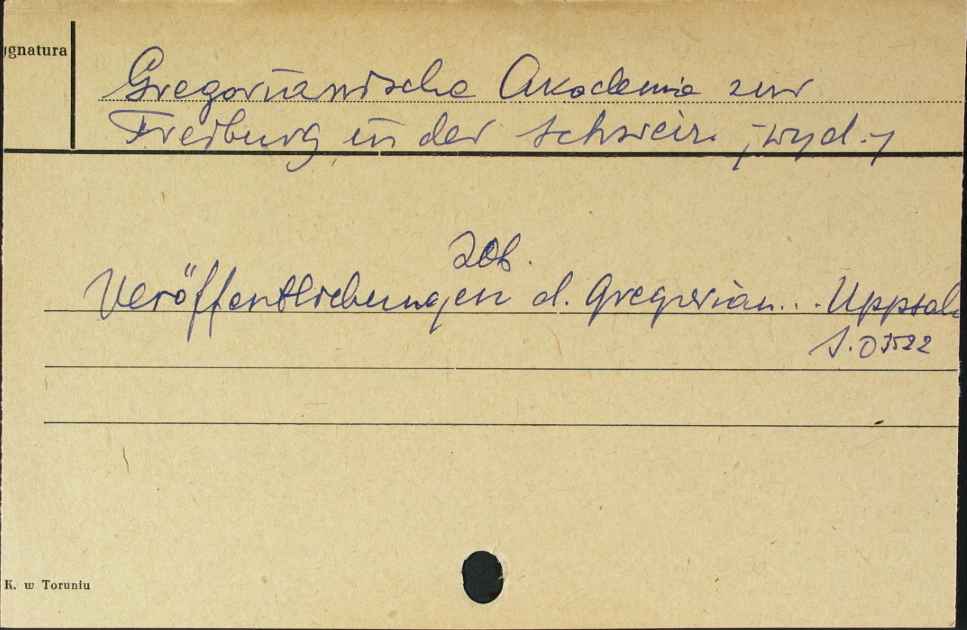 ygnatura
Gregorianische Akademie zur
Freiburg in der Schweiz. /wyd./
zob.
Veröffentlichungen d. Gregorian... Uppsala
K. w Toruniu